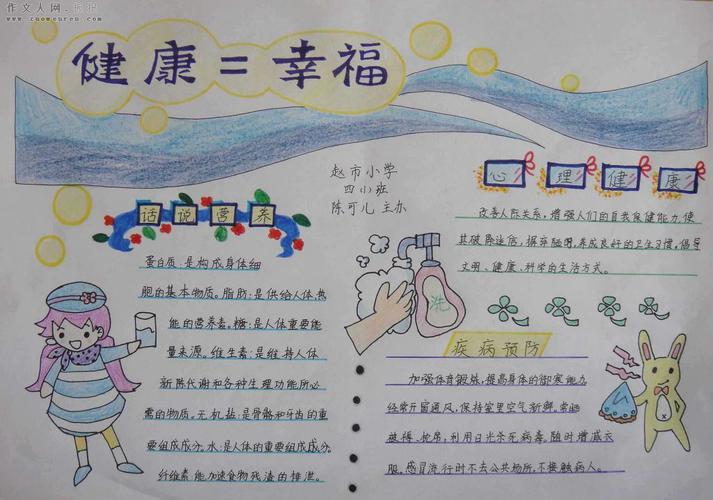 作文人网
www.zuowenren.com
健康=幸福
赵市小学
四(1)班
陈可儿 主办
话说营养
蛋白质:是构成身体细
胞的基本物质。脂肪:是供给人体热
能的营养素。糖:是人体重要能
量来源。维生素:是维持人体
新陈代谢和各种生理功能所必
需的物质。无机盐:是骨骼和牙齿的重
要组成成分。水:是人体的重要组成成分。
纤维素:能加速食物残渣的排泄。
心理健康
改善人际关系,增强人们的自我保健能力,使
其破除迷信,摒弃陋习,养成良好的卫生习惯,倡导
文明、健康、科学的生活方式。
洗
疾病预防
加强体育锻炼,提高身体的御寒能力
经常开窗通风,保持室里空气新鲜。常晒
被褥、枕席,利用日光杀死病毒。随时增减衣
服。感冒流行时不去公共场所,不接触病人。